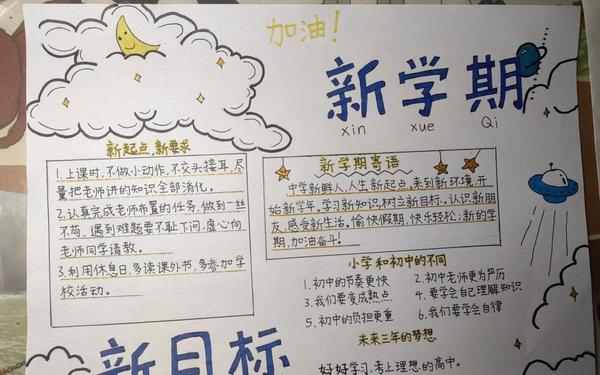 加油！
新学期
xin xue Qi
新起点，新要求
1.上课时,不做小动作,不交头接耳,尽
量把老师讲的知识全部消化。
2.认真完成老师布置的任务,做到一丝
不苟,遇到难题要不耻下问,虚心向
老师同学请教。
3.利用休息日,多读课外书,多参加学
校活动。
新学期寄语
中学新鲜人,人生新起点,来到新环境,开
始新学年。学习新知识,树立新目标。认识新朋
友,感受新生活。愉快假期,快乐轻松;新的学
期,加油奋斗!
小学和初中的不同
1.初中的节奏更快 2.初中老师更为严厉
3.我们要变成热点 4.要学会自己理解知识
5.初中的负担更重 6.我们要学会自律
未来三年的梦想
新目标
好好学习,考上理想的高中。